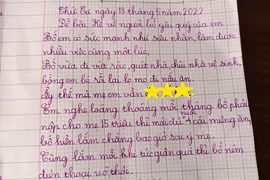 Thứ Sáu ngày 13 tháng 5 năm 2022
Đề bài: Kể về người bố yêu quý của em
Bố em có sức mạnh như siêu nhân, làm được
nhiều việc cùng một lúc.
Bố vừa đi vắt rác, quét nhà, chùi nhà vệ sinh,
bồng em bé rồi lại lò mọ đi nấu ăn.
Ấy thế mà mẹ em vẫn
Em nghe loáng thoáng mỗi tháng bố phải
nộp cho mẹ 15 triệu thì mới được nuôi cái miệng ăn,
bố hiền lắm chẳng bao giờ sai ý mẹ.
Cùng lắm mỗi khi tức giận quá thì bố ném
điện thoại vỡ thôi.